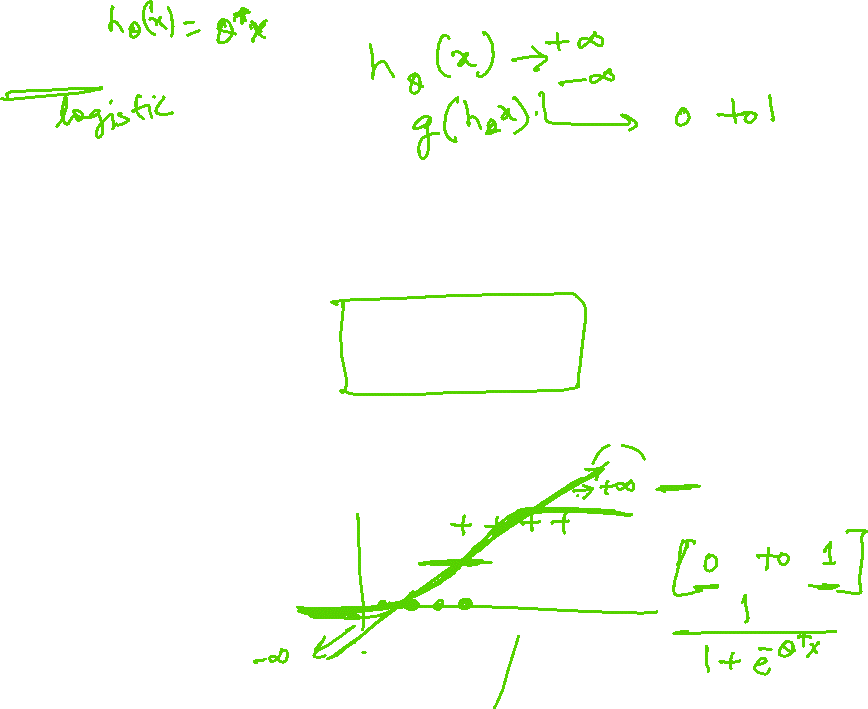 h_θ(x) = θ^T x
h_θ(x) → +∞
-∞
logistic
g(h_θ x) → 0 to 1
→ +∞
+ + + +
[0 to 1]
-∞
1
1 + e^{-θ^T x}